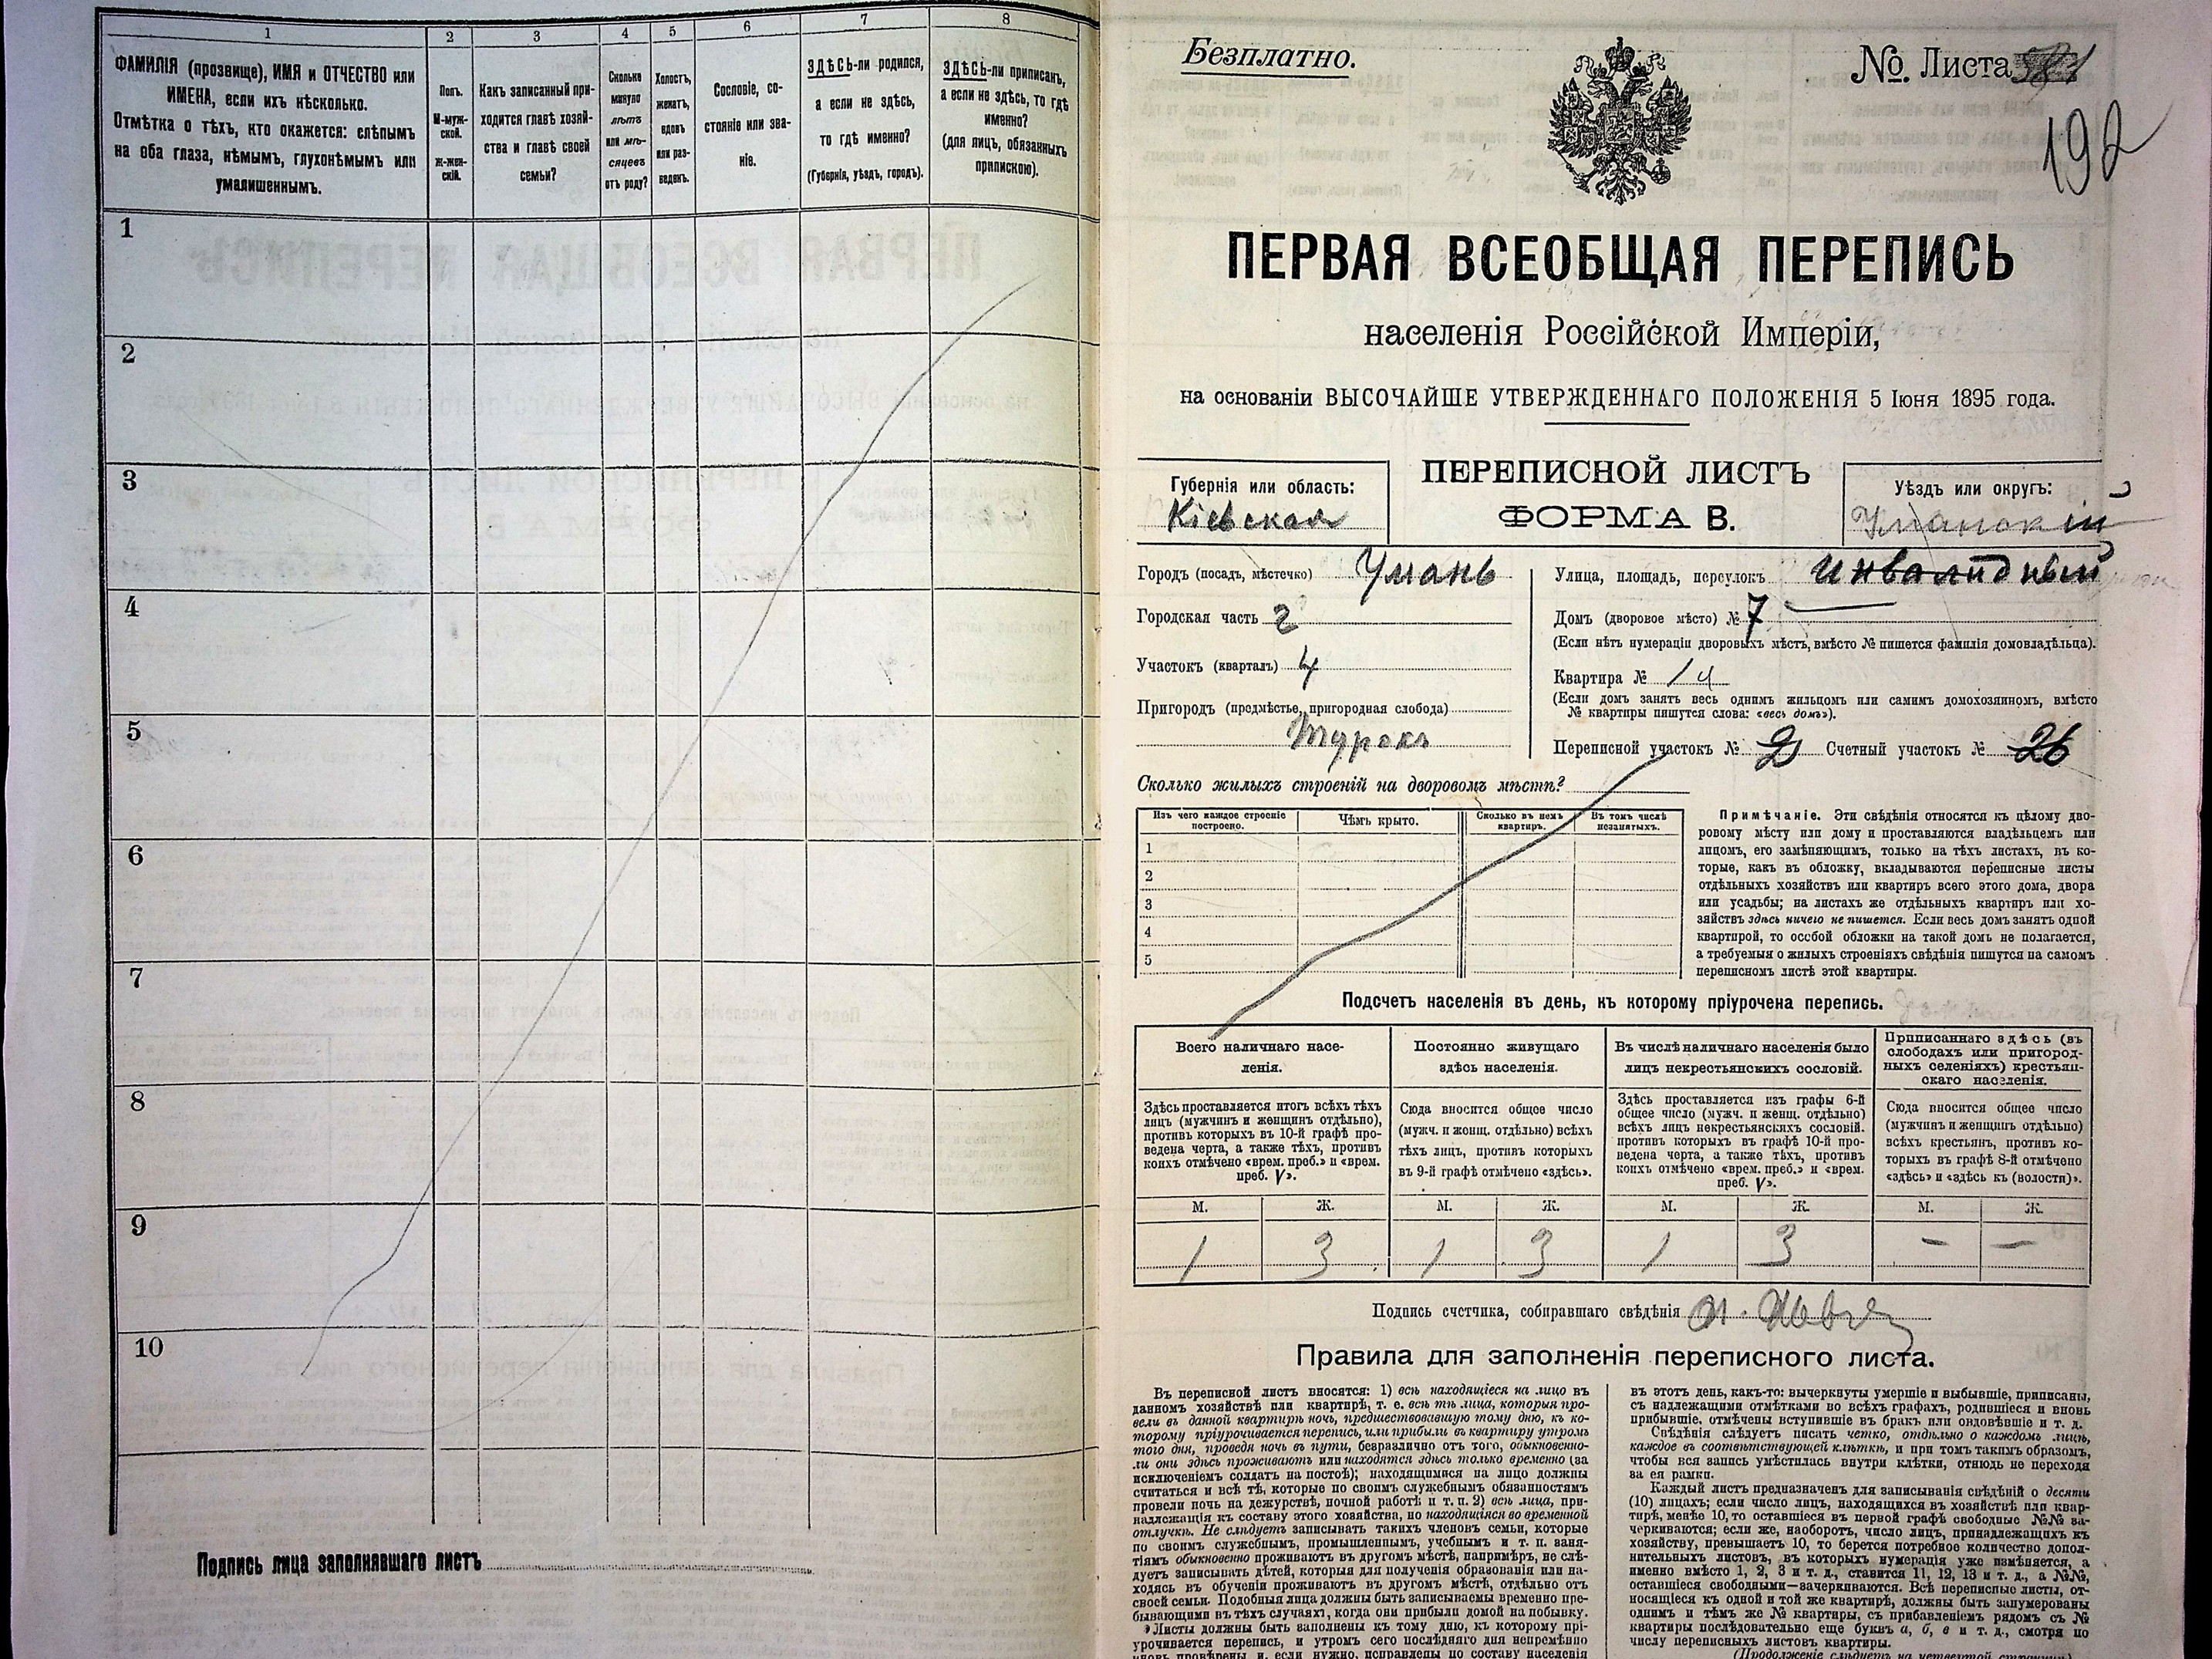 1
2
3
4
5
6
7
8
ФАМИЛІЯ (прозвище), ИМЯ и ОТЧЕСТВО или
ИМЕНА, если ихъ нѣсколько.
Отмѣтка о тѣхъ, кто окажется: слѣпымъ
на оба глаза, нѣмымъ, глухонѣмымъ или
умалишеннымъ.
Полъ.
М-муж-
ской.
ж-жен-
скій.
Какъ записанный при-
ходится главѣ хозяй-
ства и главѣ своей
семьи?
Сколько
минуло
лѣтъ
или мѣ-
сяцевъ
отъ роду?
Холостъ,
женатъ,
вдовъ
или раз-
веденъ.
Сословіе, со-
стояніе или зва-
ніе.
ЗДѢСЬ-ли родился,
а если не здѣсь,
то гдѣ именно?
(Губернія, уѣздъ, городъ).
ЗДѢСЬ-ли приписан,
а если не здѣсь, то гдѣ
именно?
(для лицъ, обязанныхъ
припискою).
1
2
3
4
5
6
7
8
9
10
Подпись лица заполнявшаго листъ
Безплатно.
№. Листа
192
ПЕРВАЯ ВСЕОБЩАЯ ПЕРЕПИСЬ
населенія Россійской Имперіи,
на основаніи ВЫСОЧАЙШЕ УТВЕРЖДЕННАГО ПОЛОЖЕНІЯ 5 Іюня 1895 года.
Губернія или область:
Кіевская
ПЕРЕПИСНОЙ ЛИСТЪ
ФОРМА В.
Уѣздъ или округъ:
Уманскій
Городъ (посадъ, мѣстечко) Умань
Городская часть 2
Участокъ (кварталъ) 4
Пригородъ (предмѣстье, пригородная слобода)
Турокъ
Улица, площадь, переулокъ Инвалидный
Домъ (дворовое мѣсто) № 7
(Если нѣтъ нумераціи дворовыхъ мѣстъ, вмѣсто № пишется фамилія домовладѣльца).
Квартира № 14
(Если домъ занятъ весь однимъ жильцомъ или самимъ домохозяиномъ, вмѣсто
№ квартиры пишутся слова: «весь домъ»).
Переписной участокъ № 2 Счетный участокъ № 26
Сколько жилыхъ строеній на дворовомъ мѣстѣ?
Изъ чего каждое строеніе
построено.
Чѣмъ крыто.
Сколько въ немъ
квартиръ.
Въ томъ числѣ
незанятыхъ.
1
2
3
4
5
Примѣчаніе. Эти свѣдѣнія относятся къ цѣлому дво-
ровому мѣсту или дому и проставляются владѣльцемъ или
лицомъ, его замѣняющимъ, только на тѣхъ листахъ, въ ко-
торые, какъ въ обложку, вкладываются переписные листы
отдѣльныхъ хозяйствъ или квартиръ всего этого дома, двора
или усадьбы; на листахъ же отдѣльныхъ квартиръ или хо-
зяйствъ здѣсь ничего не пишется. Если весь домъ занятъ одной
квартирой, то особой обложки на такой домъ не полагается,
а требуемыя о жилыхъ строеніяхъ свѣдѣнія пишутся на самомъ
переписномъ листѣ этой квартиры.
Подсчетъ населенія въ день, къ которому пріурочена перепись.
Всего наличнаго насе-
ленія.
Постоянно живущаго
здѣсь населенія.
Въ числѣ наличнаго населенія было
лицъ некрестьянскихъ сословій.
Приписаннаго здѣсь (въ
слободахъ или пригород-
ныхъ селеніяхъ) крестьян-
скаго населенія.
Здѣсь проставляется итогъ всѣхъ тѣхъ
лицъ (мужчинъ и женщинъ отдѣльно),
противъ которыхъ въ 10-й графѣ про-
ведена черта, а также тѣхъ, противъ
коихъ отмѣчено «врем. преб.» и «врем.
преб. V».
Сюда вносится общее число
(мужч. и женщ. отдѣльно) всѣхъ
тѣхъ лицъ, противъ которыхъ
въ 9-й графѣ отмѣчено «здѣсь».
Здѣсь проставляется изъ графы 6-й
общее число (мужч. и женщ. отдѣльно)
всѣхъ лицъ некрестьянскихъ сословій.
противъ которыхъ въ графѣ 10-й про-
ведена черта, а также тѣхъ, противъ
коихъ отмѣчено «врем. преб.» и «врем.
преб. V».
Сюда вносится общее число
(мужчинъ и женщинъ отдѣльно)
всѣхъ крестьянъ, противъ ко-
торыхъ въ графѣ 8-й отмѣчено
«здѣсь» и «здѣсь къ (волости)».
М. Ж. М. Ж. М. Ж. М. Ж.
1 3 1 3 1 3 — —
Подпись счетчика, собиравшаго свѣдѣнія
Правила для заполненія переписного листа.
Въ переписной листъ вносятся: 1) всѣ находящіеся на лицо въ
данномъ хозяйствѣ или квартирѣ, т. е. всѣ тѣ лица, которыя про-
вели въ данной квартирѣ ночь, предшествовавшую тому дню, къ ко-
торому пріурочивается перепись, или прибыли въ квартиру утромъ
того дня, проведя ночь въ пути, безразлично отъ того, обыкновенно-
ли они здѣсь проживаютъ или находятся здѣсь только временно (за
исключеніемъ солдатъ на постоѣ); находящимися на лицо должны
считаться и всѣ тѣ, которые по своимъ служебнымъ обязанностямъ
провели ночь на дежурствѣ, ночной работѣ и т. п. 2) всѣ лица, при-
надлежащія къ составу этого хозяйства, но находящіяся во временной
отлучкѣ. Не слѣдуетъ записывать такихъ членовъ семьи, которые
по своимъ служебнымъ, промышленнымъ, учебнымъ и т. п. заня-
тіямъ обыкновенно проживаютъ въ другомъ мѣстѣ, напримѣръ, не слѣ-
дуетъ записывать дѣтей, которыя для полученія образованія или на-
ходясь въ обученіи проживаютъ въ другомъ мѣстѣ, отдѣльно отъ
своей семьи. Подобныя лица должны быть записываемы временно пре-
бывающими въ тѣхъ случаяхъ, когда они прибыли домой на побывку.
Листы должны быть заполнены къ тому дню, къ которому прі-
урочивается перепись, и утромъ сего послѣдняго дня непремѣнно
вновь провѣрены и, если нужно, исправлены по составу населенія
въ этотъ день, какъ-то: вычеркнуты умершіе и выбывшіе, приписаны,
съ надлежащими отмѣтками во всѣхъ графахъ, родившіеся и вновь
прибывшіе, отмѣчены вступившіе въ бракъ или овдовѣвшіе и т. д.
Свѣдѣнія слѣдуетъ писать четко, отдѣльно о каждомъ лицѣ,
каждое въ соотвѣтствующей клѣткѣ, и при томъ такимъ образомъ,
чтобы вся запись умѣстилась внутри клѣтки, отнюдь не переходя
за ея рамки.
Каждый листъ предназначенъ для записыванія свѣдѣній о десяти
(10) лицахъ; если число лицъ, находящихся въ хозяйствѣ или квар-
тирѣ, менѣе 10, то оставшіеся въ первой графѣ свободные №№ за-
черкиваются; если же, наоборотъ, число лицъ, принадлежащихъ къ
хозяйству, превышаетъ 10, то берется потребное количество допол-
нительныхъ листовъ, въ которыхъ нумерація уже измѣняется, а
именно вмѣсто 1, 2, 3 и т. д., ставится 11, 12, 13 и т. д., а №№,
оставшіеся свободными—зачеркиваются. Всѣ переписные листы, от-
носящіеся къ одной и той же квартирѣ, должны быть занумерованы
однимъ и тѣмъ же № квартиры, съ прибавленіемъ рядомъ съ №
квартиры послѣдовательно еще буквъ а, б, в и т. д., смотря по
числу переписныхъ листовъ квартиры.
(Продолженіе слѣдуетъ на четвертой страницѣ)